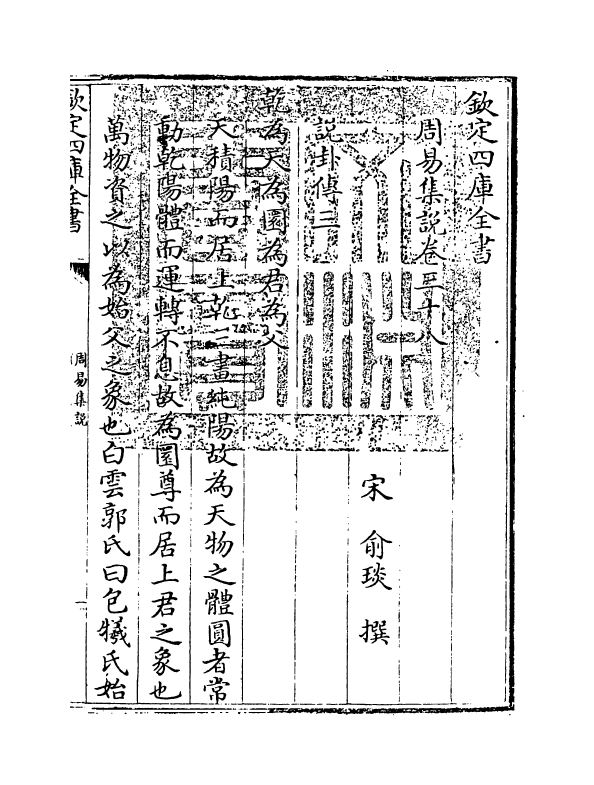 欽定四庫全書
周易集說卷三十八
宋 俞琰 撰
說卦傳三
乾為天為圜為君為父
天積陽而居上乾三畫純陽故為天物之體圓者常
動乾陽體而運轉不息故為圜尊而居上君之象也
萬物資之以為始父之象也白雲郭氏曰包犧氏始
欽定四庫全書
周易集說